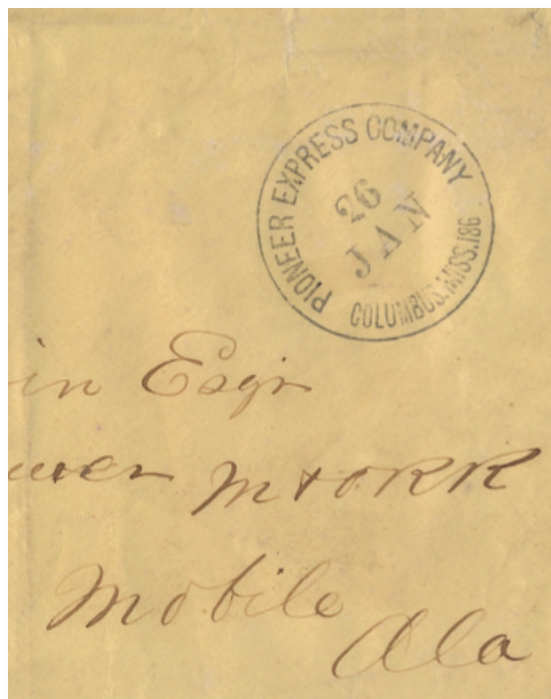 PIONEER EXPRESS COMPANY
26
JAN
COLUMBUS, MISS. 186
in Esqr
M & O RR
Mobile
Ala